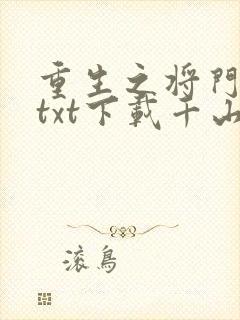 重生之将門
txt下載千山
滚鳥